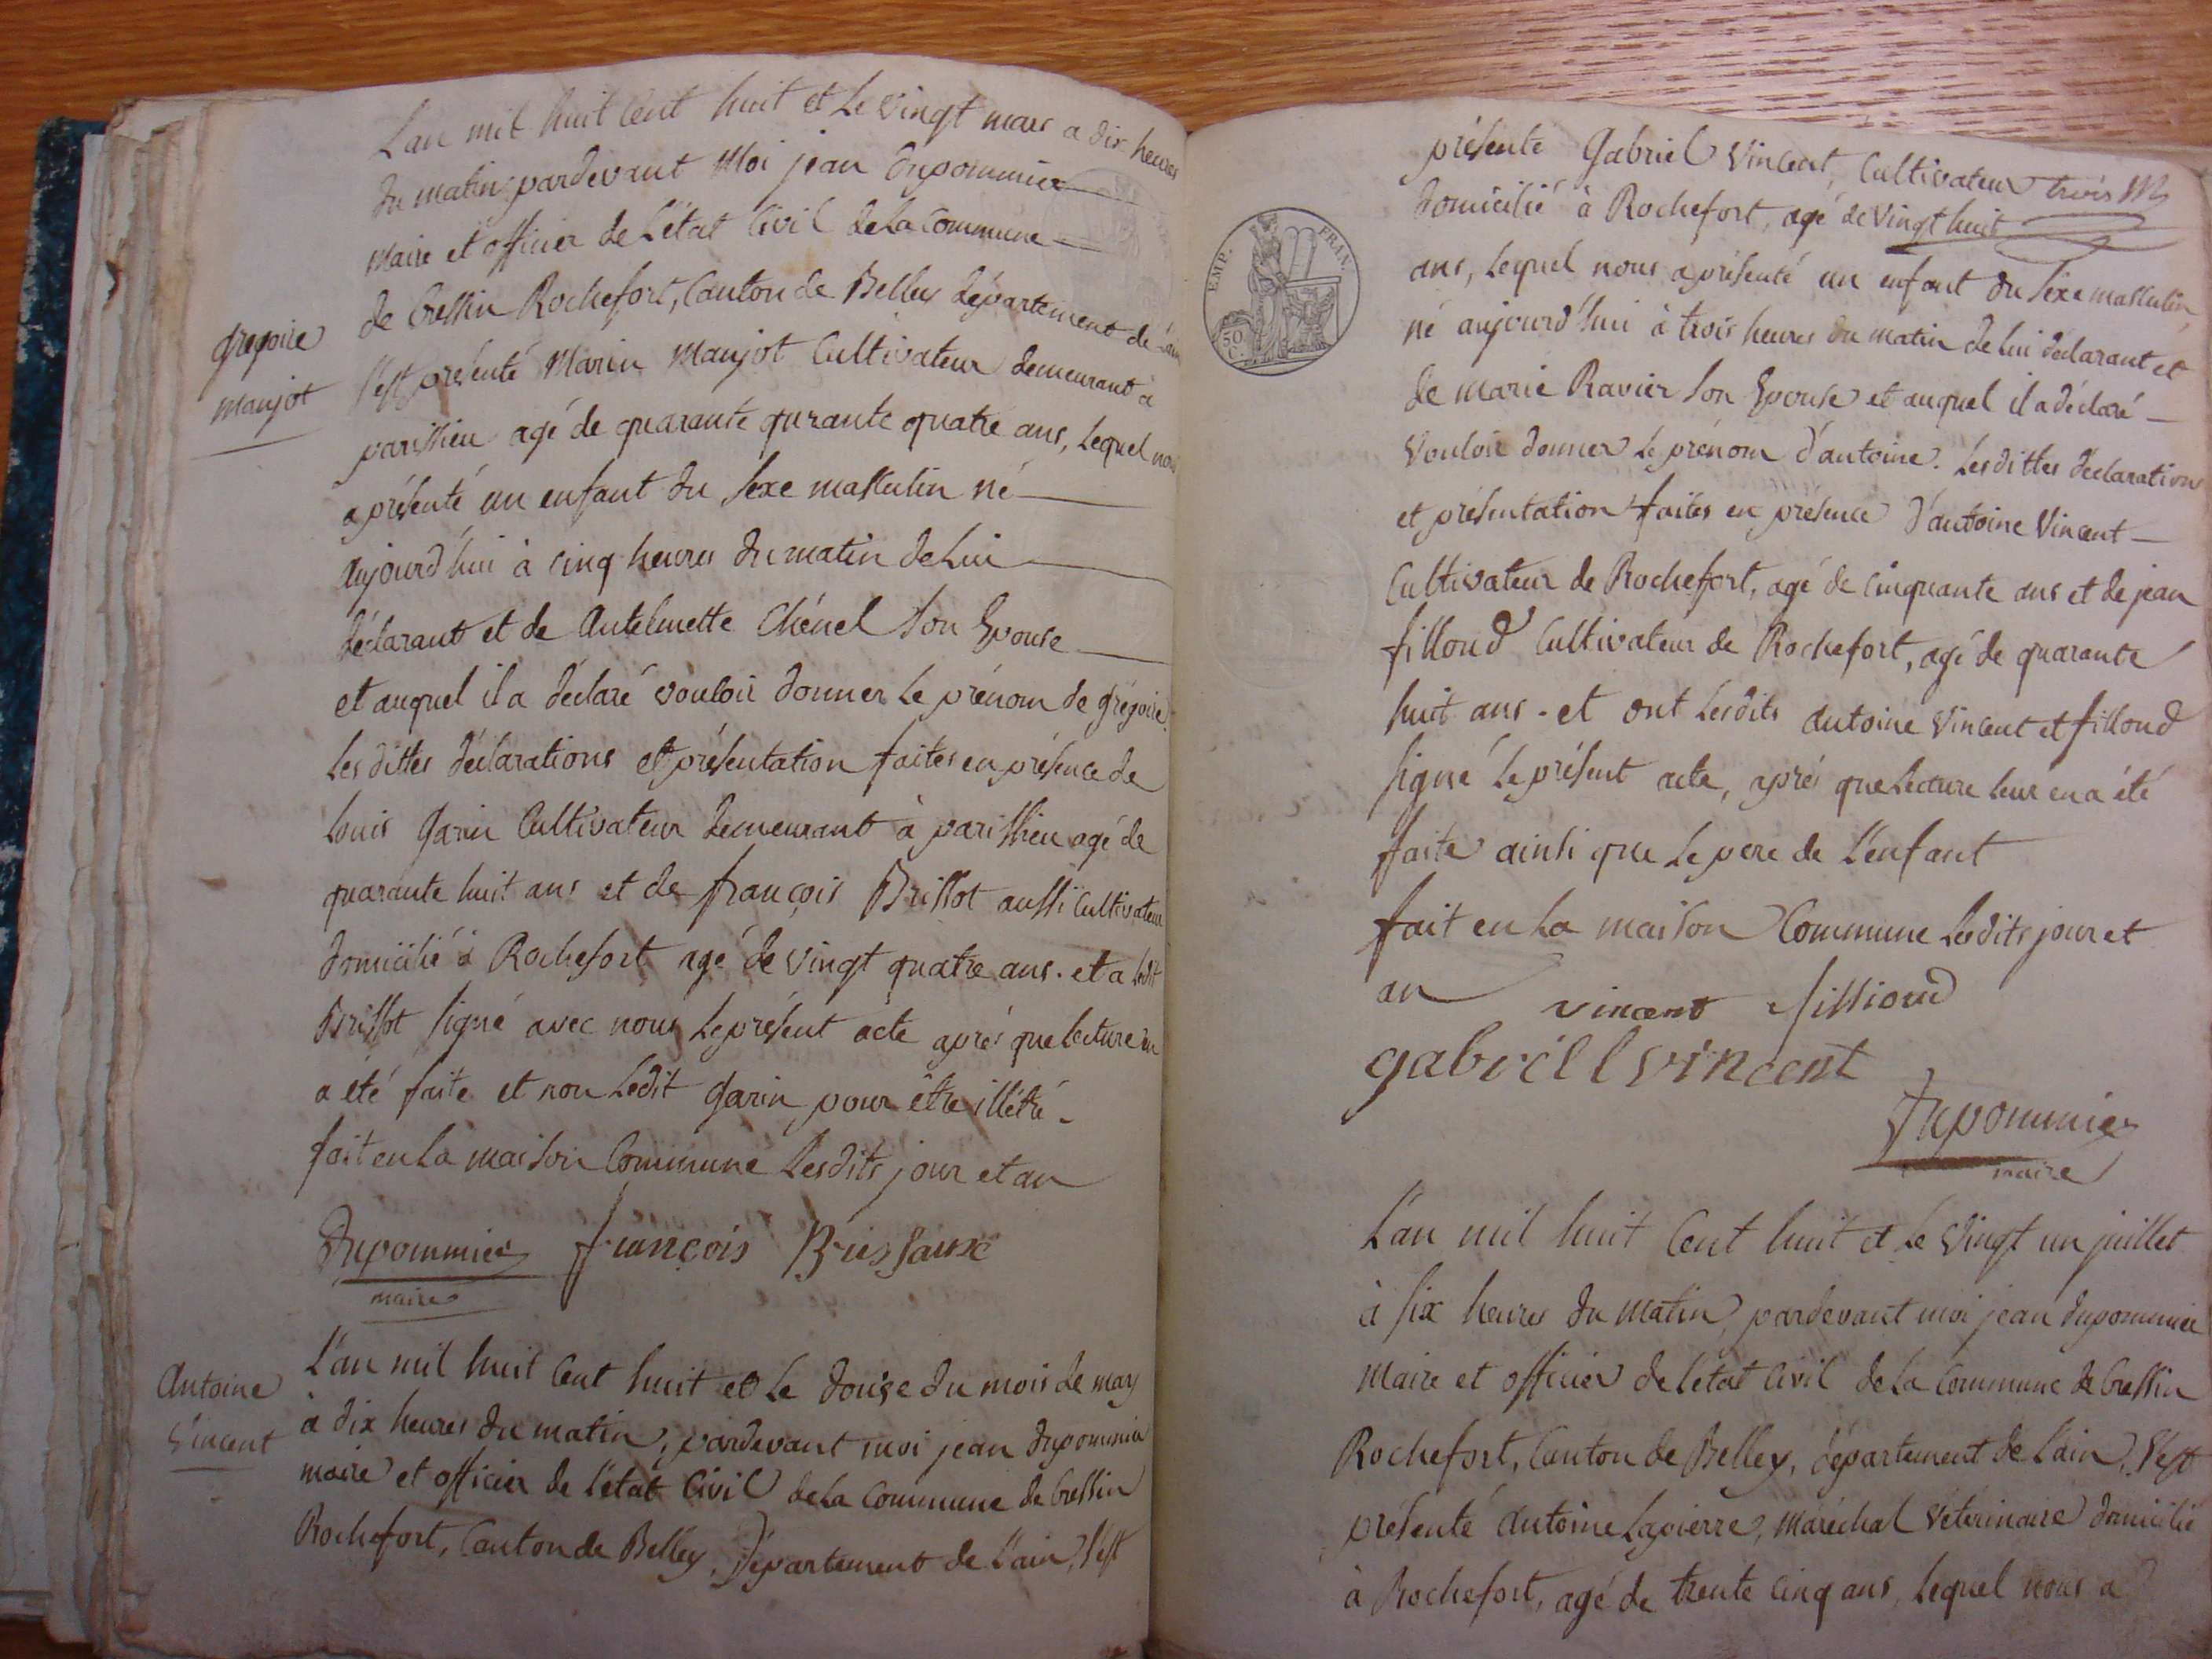 L'an mil huit cent huit et le vingt mars a dix heures
du matin, pardevant moi jean Dupommier
maire et officier de l'état civil de la commune
de Cressin Rochefort, canton de Belley département de l'ain
s'est présenté Marin Maujot cultivateur demeurant à
parissieu agé de quarante qurante quatre ans, lequel nous
a présenté un enfant du sexe masculin né
aujourd'hui à cinq heures du matin de lui
déclarant et de Antelmette Chénel son Epouse
et auquel il a déclaré vouloir donner le prénom de grégoire.
les dittes déclarations et présentation faites en présence de
louis Garin cultivateur demeurant à parissieu agé de
quarante huit ans et de françois Brissot aussi cultivateur
domicilié à Rochefort agé de vingt quatre ans. et a ledit
Brissot signé avec nous le présent acte aprés que lecture en
a eté faite et non ledit Garin pour être illétré.
fait en la maison commune lesdits jour et an
Dupommier françois Brissaux
maire
gregoire
maujot
Antoine
Vincent
L'an mil huit cent huit et le douze du mois de may
à dix heures du matin, pardevant moi jean dupommier
maire et officier de l'état civil de la commune de Cressin
Rochefort, canton de Belley, Département de l'ain, s'est
présenté Gabriel Vincent, cultivateur trois
domicilié à Rochefort, agé de vingt huit
ans, lequel nous a présenté un enfant du sexe masculin,
né aujourd'hui à trois heures du matin de lui déclarant et
de marie Ravier son Epouse et auquel il a déclaré
vouloir donner le prénom d'antoine. Les dittes déclarations
et présentation faites en présence d'antoine Vincent
cultivateur de Rochefort, agé de cinquante ans et de jean
filloud cultivateur de Rochefort, agé de quarante
huit ans. et ont lesdits antoine Vincent et filloud
signé le présent acte, aprés que lecture leur en a été
faite ainsi que le pere de l'enfant
fait en la maison commune lesdits jour et
an vincent fillioud
gabriel vincent
Dupommier
maire
L'an mil huit cent huit et le vingt un juillet
à six heures du matin, pardevant moi jean dupommier
maire et officier de l'état civil de la commune de Cressin
Rochefort, canton de Belley, département de l'ain, s'est
présenté antoine Lapierre, maréchal vétérinaire domicilié
à Rochefort, agé de trente cinq ans, lequel nous a
EMP. FRAN.
50
C.